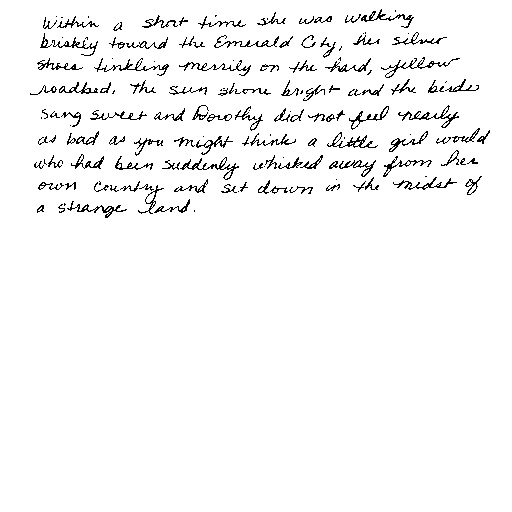 Within a short time she was walking
briskly toward the Emerald City, her silver
shoes tinkling merrily on the hard, yellow
roadbed. The sun shone bright and the birds
sang sweet and Dorothy did not feel nearly
as bad as you might think a little girl would
who had been suddenly whisked away from her
own country and set down in the midst of
a strange land.